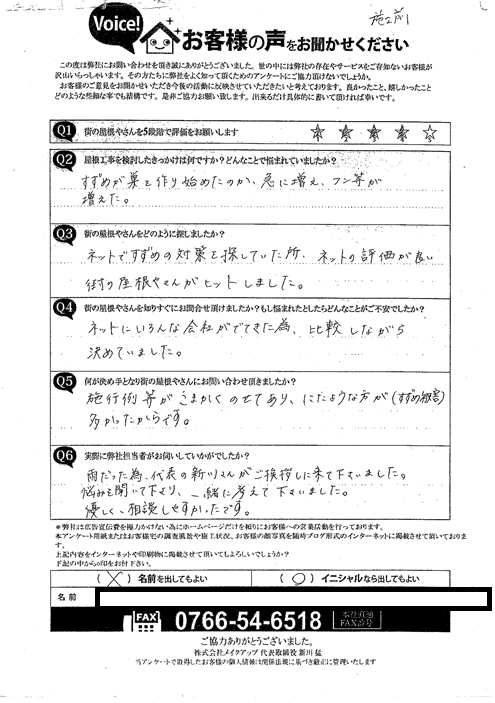 施工前
Voice!
お客様の声をお聞かせください
この度は弊社にお問い合わせを頂き誠にありがとうございました。世の中には弊社の存在やサービスをご存知ないお客様が
沢山いらっしゃいます。その方たちに弊社をよく知って頂くためのアンケートにご協力頂けないでしょうか。
お客様のご意見をお聞かせいただき今後の活動に反映させていただきたいと考えております。良かったこと、嬉しかったこと
どのような些細な事でも結構です。是非ご協力お願い致します。出来るだけ具体的に書いて頂ければ幸いです。
Q1 街の屋根やさんを5段階で評価をお願いします ☆ ☆ ☆ ☆ ☆
Q2 屋根工事を検討したきっかけは何ですか?どんなことで悩まれていましたか?
すずめが巣を作り始めたのか、急に増え、フン等が
増えた。
Q3 街の屋根やさんをどのように探しましたか?
ネットですずめの対策を探していた所、ネットの評価が良い
街の屋根やさんがヒットしました。
Q4 街の屋根やさんを知りすぐにお問合せ頂けましたか?もし悩まれたとしたらどんなことがご不安でしたか?
ネットにいろんな会社がでてきた為、比較しながら
決めていました。
Q5 何が決め手となり街の屋根やさんにお問い合わせ頂きましたか?
施行例等がこまかくのせてあり、にたような方が(すずめ被害)
多かったからです。
Q6 実際に弊社担当者がお伺いしていかがでしたか?
雨だった為、代表の新川さんがご挨拶しに来て下さいました。
悩みを聞いて下さり、一緒に考えて下さいました。
優しく、相談しやすかったです。
*弊社は広告宣伝費を極力かけない為にホームページだけを頼りにお客様への営業活動を行っております。
本アンケート用紙またはお客様宅の調査風景や施工状況、お客様の顔写真を随時ブログ形式のインターネットに掲載させて頂いておりま
す。
上記内容をインターネットや印刷物に掲載させて頂いてもよろしいでしょうか?
下記の中から○印をお付け下さい。
(×)名前を出してもよい (○)イニシャルなら出してもよい
名前
FAX 0766-54-6518 本社直通 FAX番号
ご協力ありがとうございました。
株式会社メイクアップ 代表取締役 新川 猛
当アンケートで取得したお客様の個人情報は関係法規に基づき厳正に管理いたします